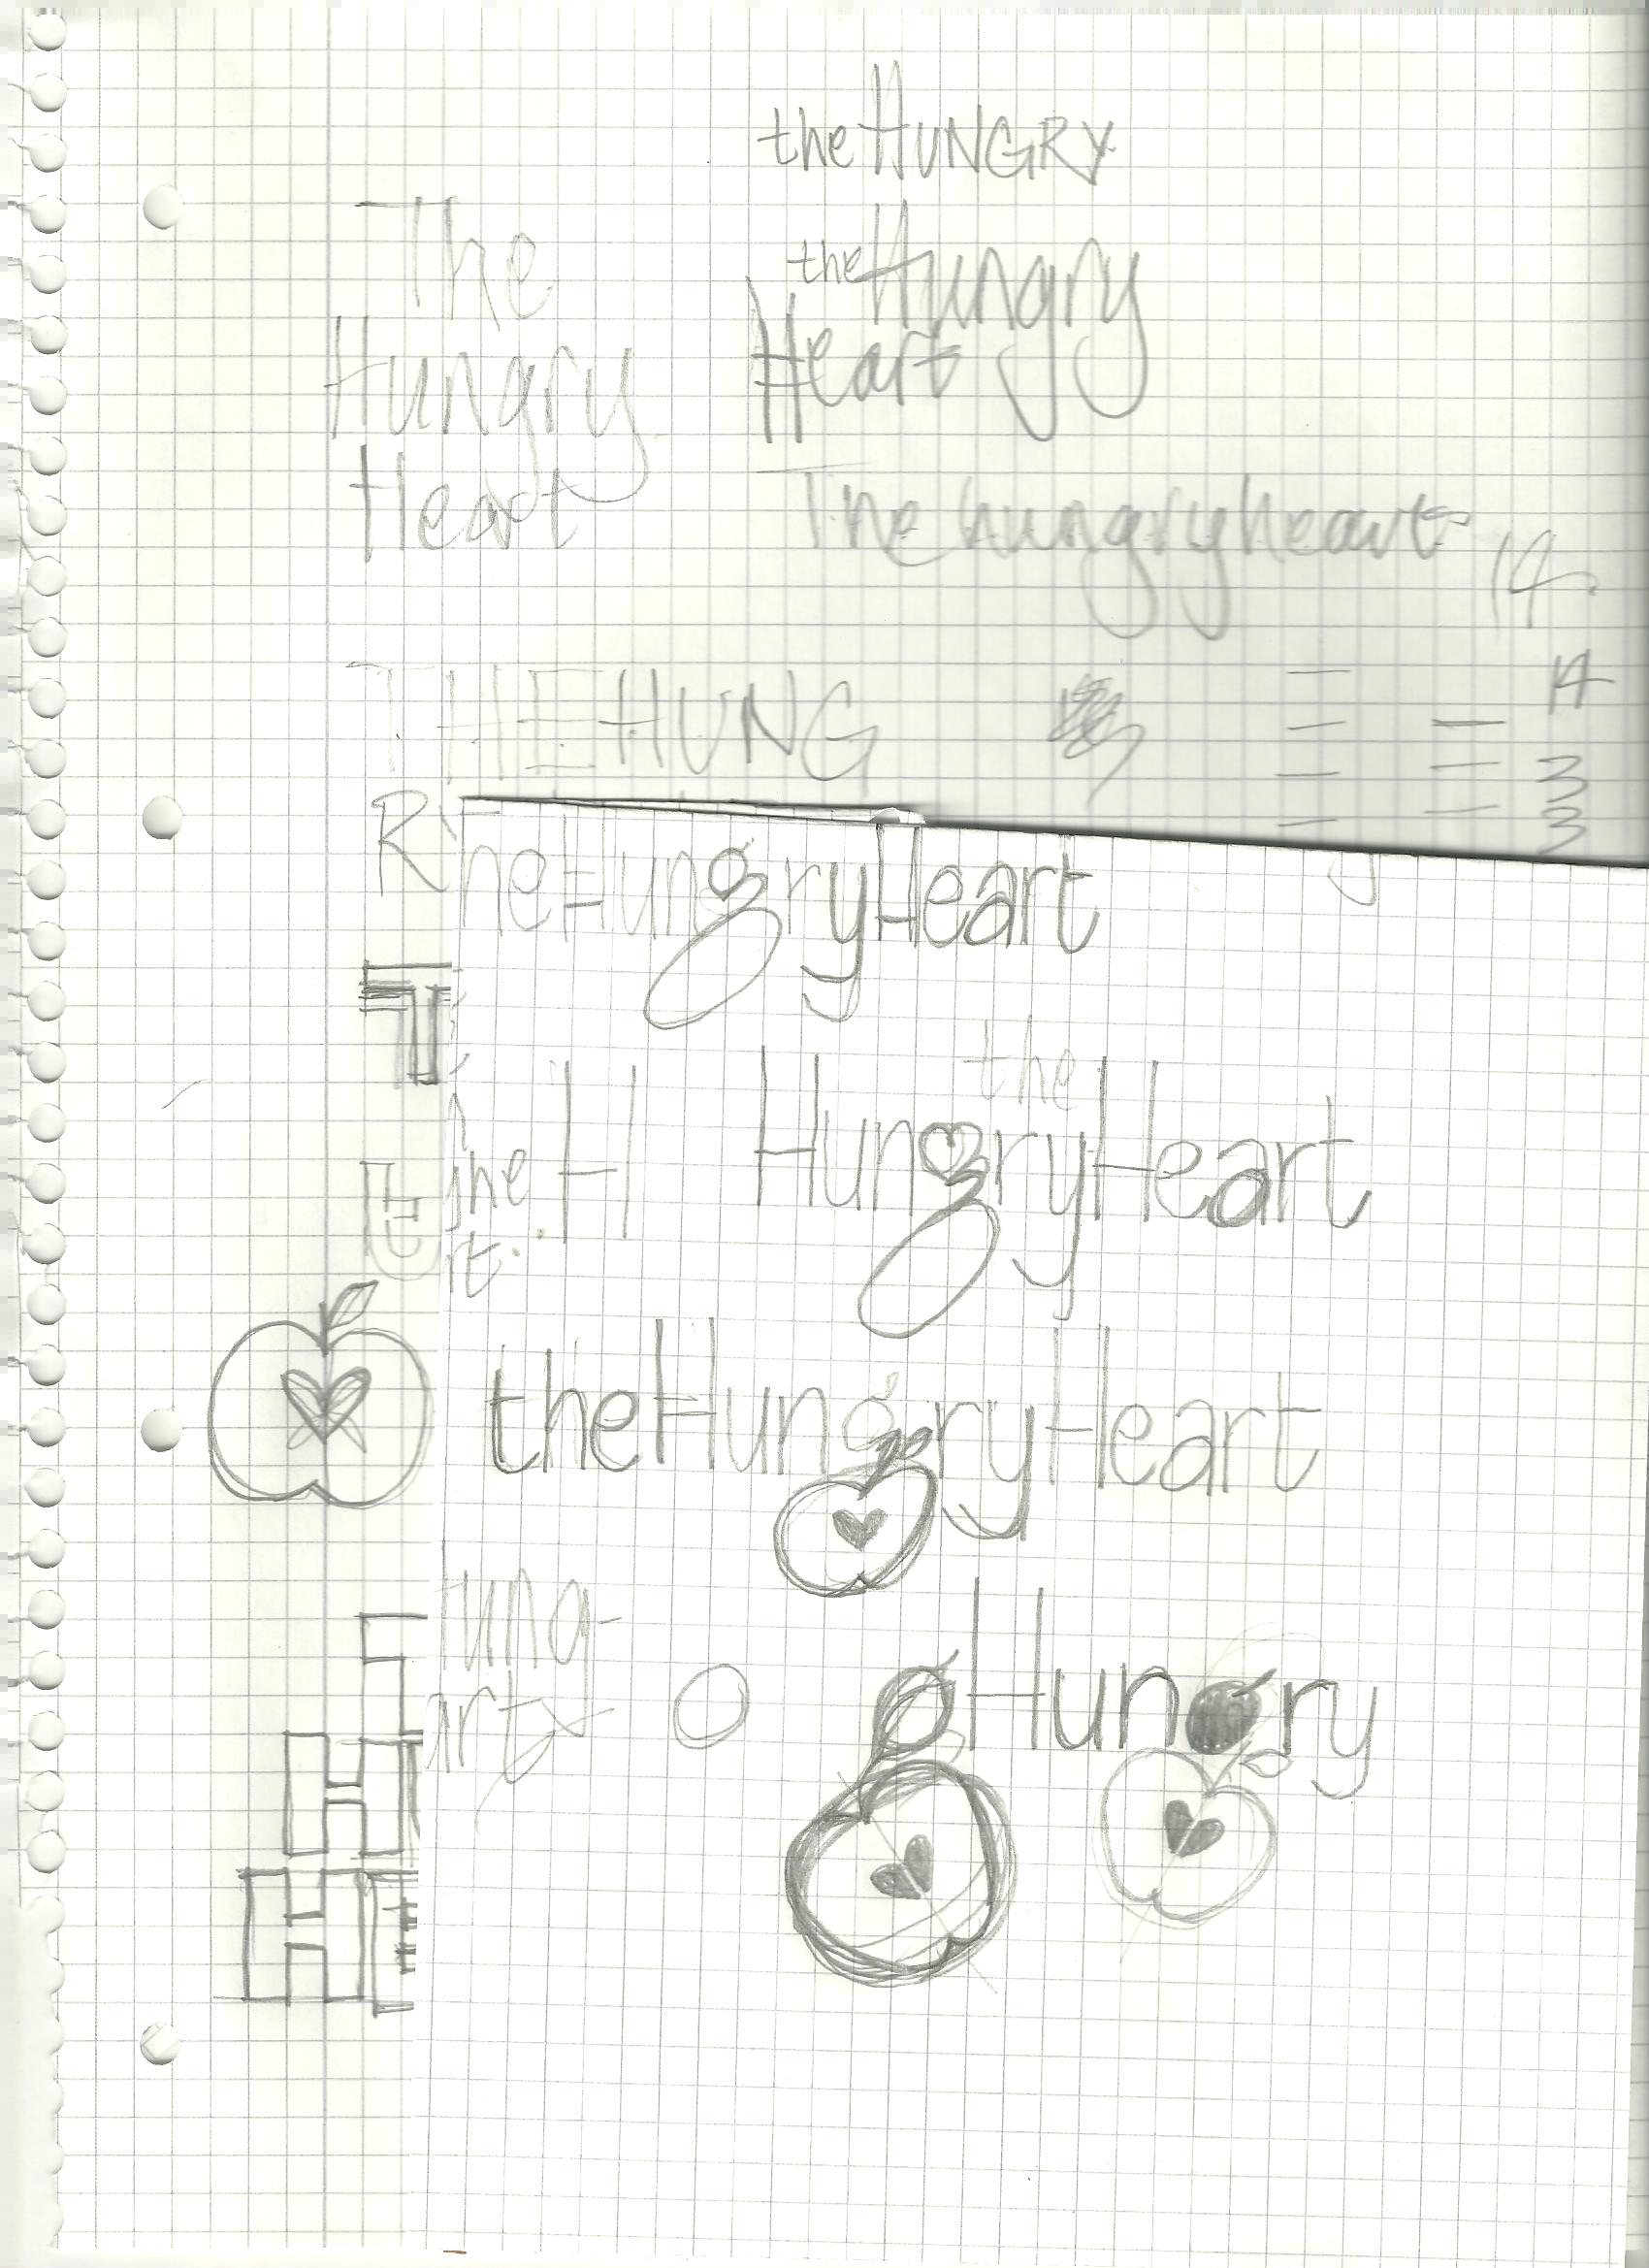 theHUNGRY
The
Hungry
Heart
theHungry
Heart
Thehungryheart
14
14
THEHUNG
3
3
R
heHungryHeart
T
the
H HungryHeart
theHungryHeart
gHungry